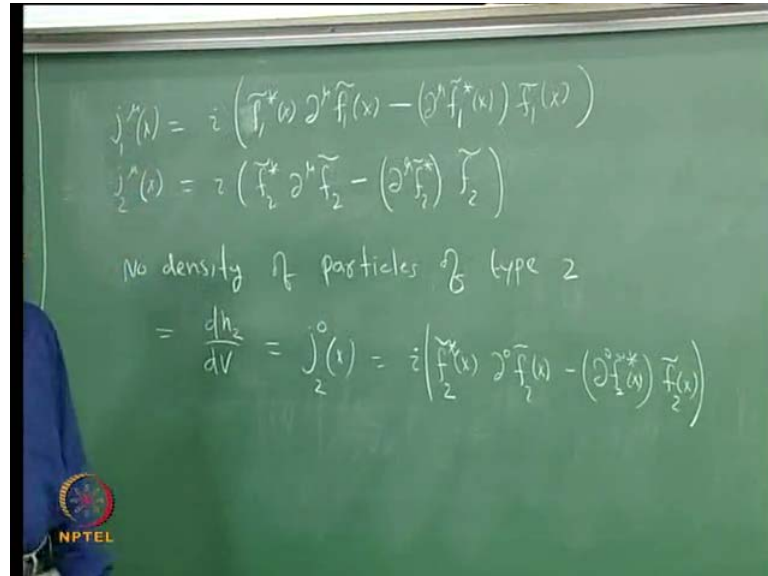 j₁^μ(x) = i ( f̃₁*(x) ∂^μ f̃₁(x) − (∂^μ f̃₁*(x)) f̃₁(x) )
j₂^μ(x) = i ( f̃₂* ∂^μ f̃₂ − (∂^μ f̃₂*) f̃₂ )
No density of particles of type 2
= dn₂/dV = j₂⁰(x) = i ( f̃₂*(x) ∂⁰ f̃₂(x) − (∂⁰ f̃₂*(x)) f̃₂(x) )
NPTEL